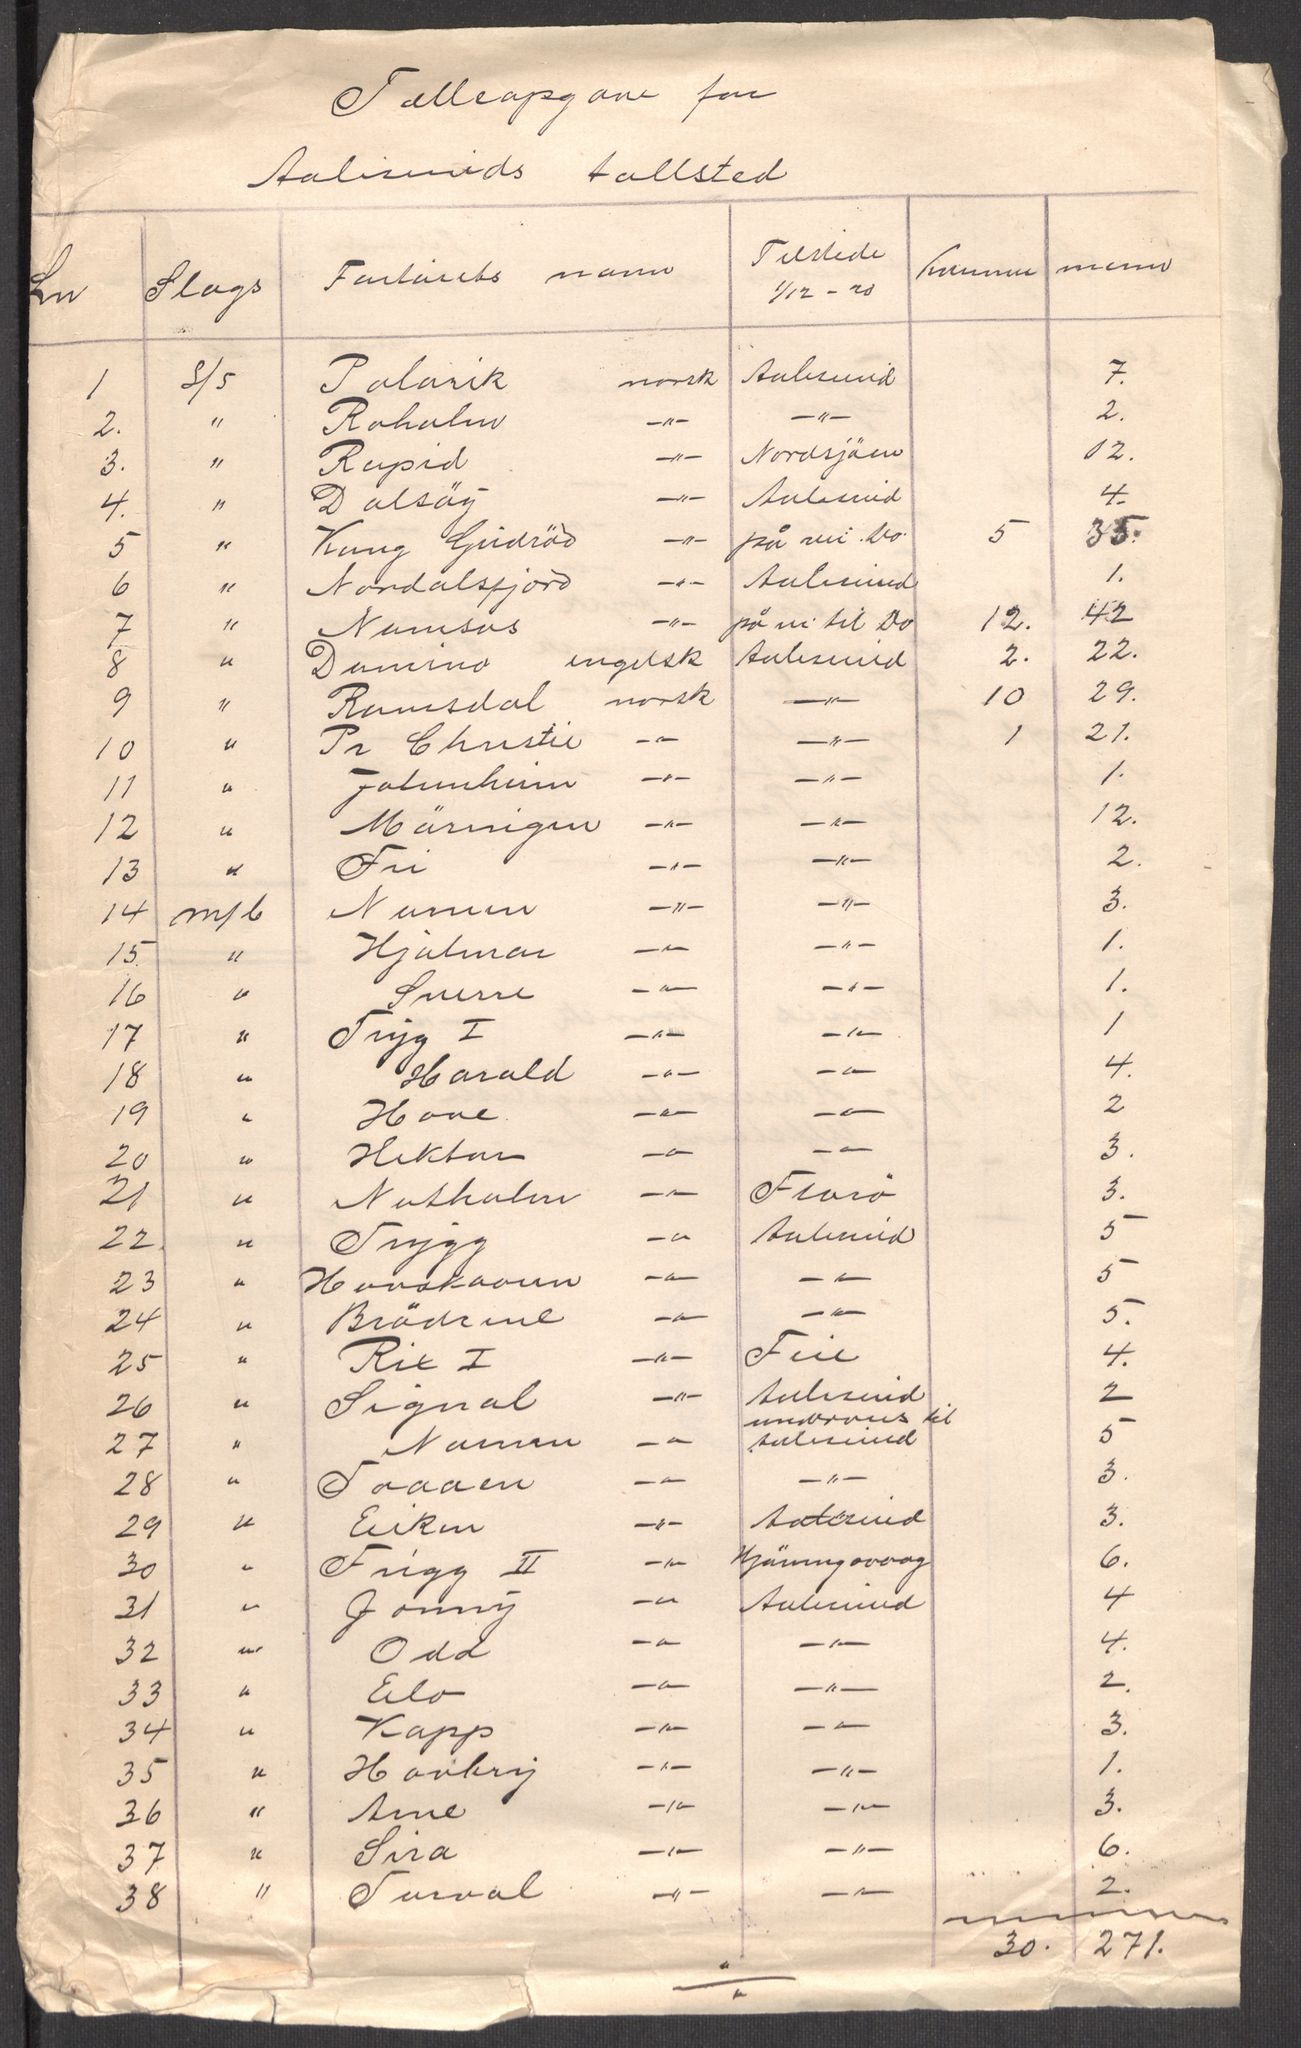 Tælleopgave for
Aalesunds tollsted
Lnr Slags Fartöiets navn Tilstede 1/12-20 kvinner menn
1 S/S Polarik norsk Aalesund 7.
2. " Roholm -"- -"- 2.
3. " Rapid -"- Nordsjöen 12.
4. " Dalsöy -"- Aalesund 4.
5 " Kong Gudröd -"- på vei Do. 5 35.
6 " Nordalsfjord -"- Aalesund 1.
7 " Namsos -"- på vei til Do 12. 42
8 " Domino engelsk Aalesund 2. 22.
9 " Romsdal norsk -"- 10 29.
10 " Pr Christie -"- -"- 1 21.
11 " Jotunheim -"- -"- 1.
12 " Möringen -"- -"- 12.
13 " Fri -"- -"- 2.
14 m/b Numen -"- -"- 3.
15. " Hjalmar -"- -"- 1.
16 " Sverre -"- -"- 1.
17 " Tryg I -"- -"- 1
18 " Harald -"- -"- 4.
19 " Hove -"- -"- 2
20 " Hektor -"- -"- 3.
21 " Notholm -"- Florö 3.
22. " Trygg -"- Aalesund 5
23 " Havskaren -"- -"- 5
24 " Brödrene -"- -"- 5.
25 " Rix I -"- Feie 4.
26 " Signal -"- Aalesund 2
27 " Numen -"- underveis til Aalesund 5
28 " Toaaen -"- -"- 3.
29 " Eiken -"- Aalesund 3.
30 " Frigg II -"- Hjörungavaag 6.
31 " Jonny -"- Aalesund 4
32 " Odd -"- -"- 4.
33 " Elo -"- -"- 2.
34 " Kapp -"- -"- 3.
35 " Havbryn -"- -"- 1.
36 " Arne -"- -"- 3.
37 " Sira -"- -"- 6.
38 " Torval -"- -"- 2.
30. 271.